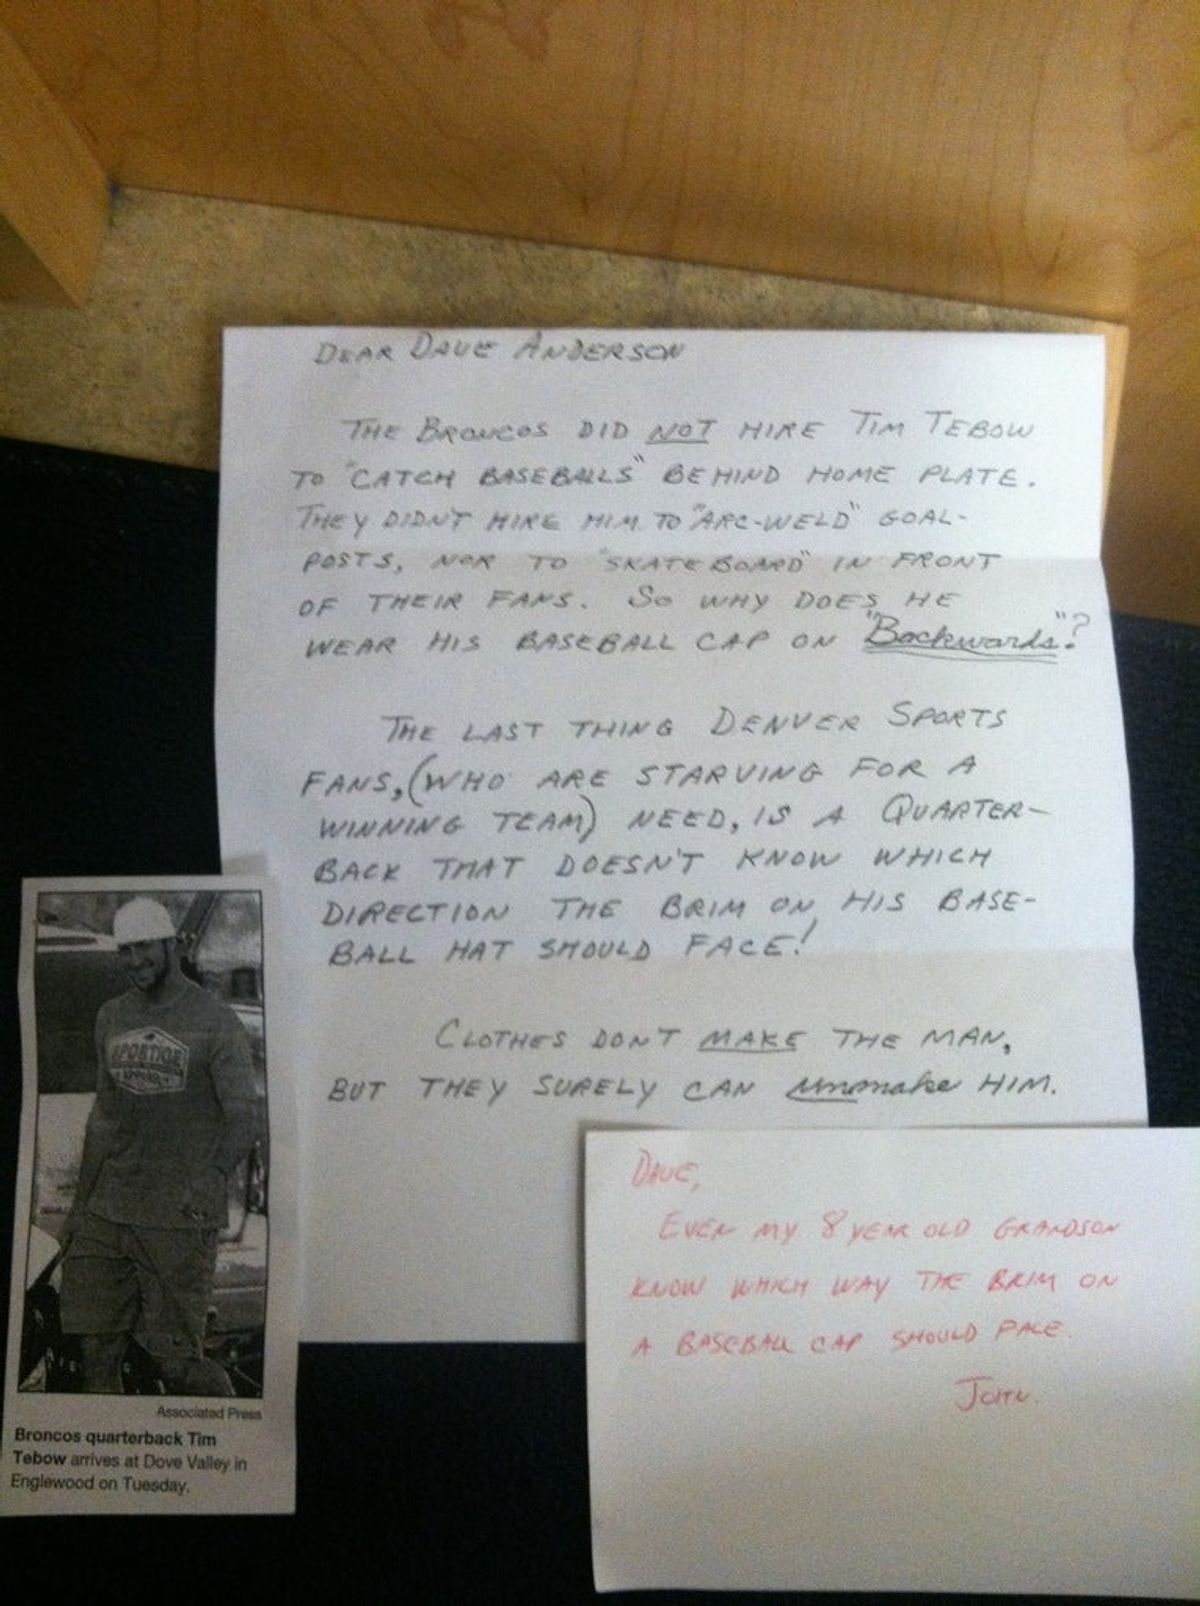 DEAR DAVE ANDERSON
THE BRONCOS DID NOT HIRE TIM TEBOW
TO "CATCH BASEBALLS" BEHIND HOME PLATE.
THEY DIDN'T HIRE HIM TO "ARC-WELD" GOAL-
POSTS, NOR TO "SKATEBOARD" IN FRONT
OF THEIR FANS. SO WHY DOES HE
WEAR HIS BASEBALL CAP ON "Backwards"?
THE LAST THING DENVER SPORTS
FANS, (WHO ARE STARVING FOR A
WINNING TEAM) NEED, IS A QUARTER-
BACK THAT DOESN'T KNOW WHICH
DIRECTION THE BRIM ON HIS BASE-
BALL HAT SHOULD FACE!
CLOTHES DON'T MAKE THE MAN,
BUT THEY SURELY CAN unmake HIM.
Associated Press
Broncos quarterback Tim
Tebow arrives at Dove Valley in
Englewood on Tuesday.
DAVE,
EVEN MY 8 YEAR OLD GRANDSON
KNOW WHICH WAY THE BRIM ON
A BASEBALL CAP SHOULD FACE.
JOHN.